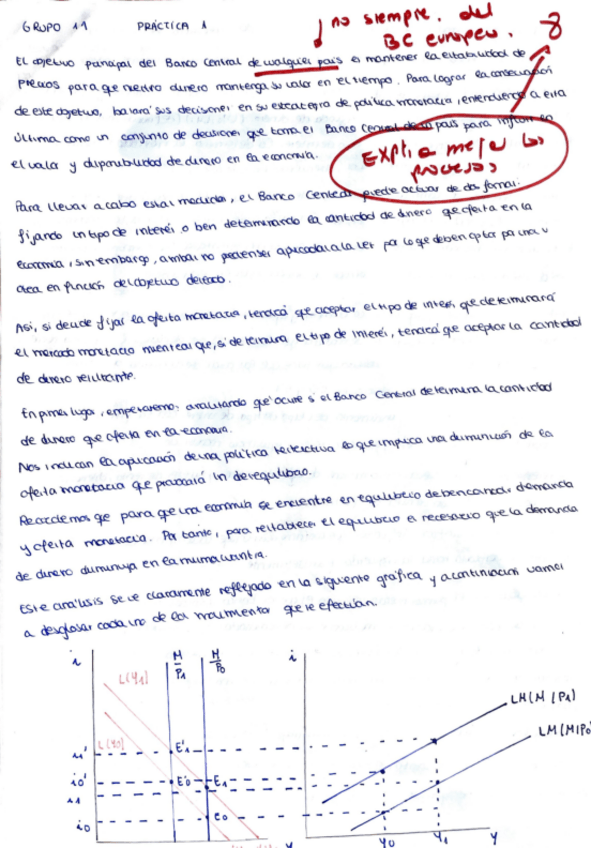 GRUPO 11 PRÁCTICA 1
no siempre. del
BC europeo.
8
El objetivo principal del Banco Central de cualquier país es mantener la estabilidad de
precios para que nuestro dinero mantenga su valor en el tiempo. Para lograr la consecución
de este objetivo, basará sus decisiones en su estrategia de política monetaria, entendiendo a esta
última como un conjunto de decisiones que toma el Banco Central de un país para influir en
el valor y disponibilidad de dinero en la economía.
Explica mejor los
procesos
Para llevar a cabo estas medidas, el Banco Central puede actuar de dos formas:
fijando un tipo de interés o bien determinando la cantidad de dinero que oferta en la
economía, sin embargo, ambas no pueden ser aplicadas a la vez por lo que deben optar por una u
otra en función del objetivo deseado.
Así, si decide fijar la oferta monetaria, tendrá que aceptar el tipo de interés que determinará
el mercado monetario mientras que, si determina el tipo de interés, tendrá que aceptar la cantidad
de dinero resultante.
En primer lugar, empezaremos analizando qué ocurre si el Banco Central determina la cantidad
de dinero que oferta en la economía.
Nos indican la aplicación de una política restrictiva lo que implica una disminución de la
oferta monetaria que provocará un desequilibrio.
Recordemos que para que una economía se encuentre en equilibrio deben coincidir demanda
y oferta monetaria. Por tanto, para restablecer el equilibrio es necesario que la demanda
de dinero disminuya en la misma cuantía.
Este análisis se ve claramente reflejado en la siguiente gráfica y a continuación vamos
a desglosar cada uno de los movimientos que se efectúan.
i M/P1 M/P0 i
L(Y1)
L(Y0)
LM(M/P1)
LM(M/P0
i1' E'1
i0' E'0 E1
i1
i0 E0
Y0 Y1 Y